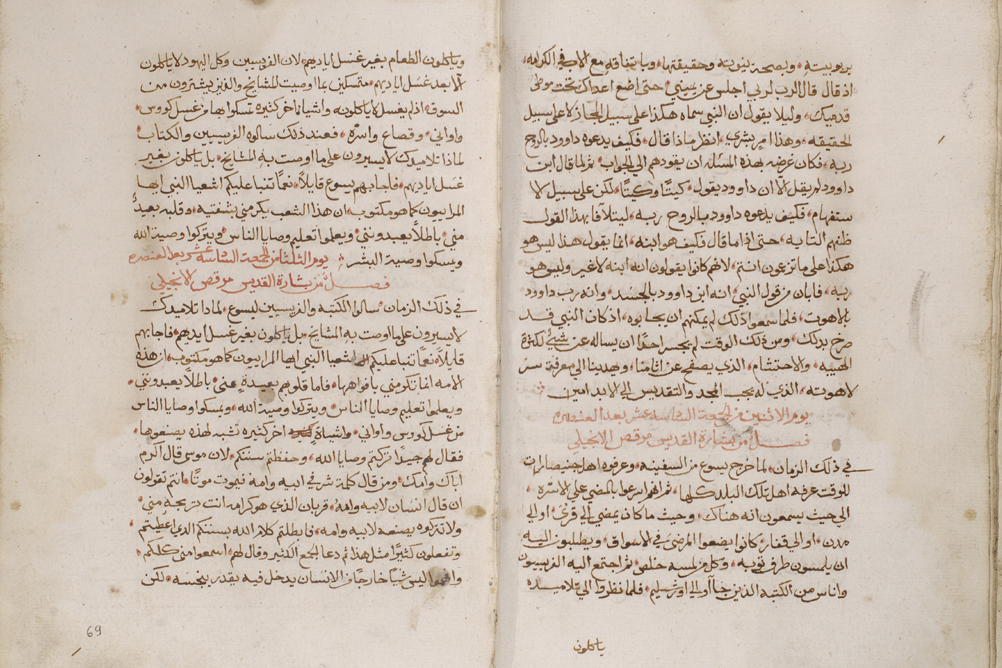 بربوبيته، وبصحة بنوته وحقيقتها، وباتفاقه مع الاب في الكرامه،
اذ قال قال الرب لربي اجلس عن يميني حتى اضع اعداك تحت موطي
قدميك، وليلا يقول ان النبي سماه هكذا على سبيل المجاز لا على سبيل
الحقيقه، وهذا من بشري، انظر ماذا قال، فكيف يدعوه داوود بالروح
ربه، فكان غرضه بهذه المسله ان يقودهم الى الجواب، ثم لما قال ابن
داوود لم يقل لا ان داوود يقول، كيت وكيت، لكن على سبيل الا
ستفهام، فكيف يدعوه داوود بالروح ربه، ليتلافا بهذا القول
ظنهم التايه، حتى اذا ما قال فكيف هو ابنه، انما يقول هذا ليس هو
هكذا على ما تزعمون انتم، لانهم كانوا يقولون انه ابنه لا غير وليس هو
ربه، فابان من قول النبي، انه ابن داوود بالجسد، وانه رب داوود
بالاهوت، فلما سمعوا ذلك لم يمكنهم ان يجابوه، اذ كان النبي قد
صرح بذلك، ومن ذلك الوقت لم يجسر احدا ان يساله عن شي لكثرة
الهيبه، والاحتشام، الذي يصفح عن اثامنا، ويهدينا الى معرفة سر
لاهوته، الذي له يجب المجد والتقديس الى الابد امين
يوم الاثنين من الجمعه السادسه عشر بعد العنصره
فصل من بشارة القديس مرقص الانجيلي
في ذلك الزمان، لما خرج يسوع من السفينه، وعرفوه اهل جنيصارات
للوقت عرفه اهل تلك البلد كلها، ثم انهم اسرعوا بالمضي على الاسره،
الى حيث يسمعون انه هناك، وحيث ما كان يمضي الى قرى، او الى
مدن، او الى قفار، كانوا يضعوا المرضى في الاسواق، ويطلبون اليه
ان يلمسون طرف ثوبه، وكل من لمسه خلص، ثم اجتمع اليه الفريسيون
واناس من الكتبه الذين جاآ وا الى اورشليم، فلما نظروا الى تلاميذه
ياكلون
وياكلون الطعام بغير غسل اياديهم، لان الفريسيين وكل اليهود لا ياكلون
الا بعد غسل اياديهم، متمسكين بما اوصت المشايخ، والذين يشترون من
السوق، اذ لم يغسل لا ياكلونه، واشيا اخر كثيره تمسكوا بها من غسل كووس،
واواني، وقصاع واسره، فعند ذلك سالوه الفريسيين والكتاب،
لماذا تلاميذك لا يسيرون على ما اوصت به المشايخ، بل ياكلون بغير
غسل اياديهم، فاجابهم يسوع قايلا، نعما تنبا عليكم اشعيا النبي ايها
المرايبون كما هو مكتوب، ان هذا الشعب يكرمني بشفتيه، وقلبه بعيد
مني، باطلا يعبدونني، ويعلموا تعليم وصايا الناس، ويتركوا وصية الله
ويمسكوا وصية البشر
يوم الثلثا من الجمعه السادسه عشر بعد العنصره
فصل من بشارة القديس مرقص الانجيلي
في ذلك الزمان، سالوا الكتبه والفريسيين ليسوع، لماذا تلاميذك
لا يسيرون على ما اوصت به المشايخ، بل ياكلون بغير غسل ايديهم، فاجابهم
قايلا، نعما تنبا عليكم اشعيا النبي ايها المرايبون كما هو مكتوب، ان هذه
الامه انما تكرمني بافواهها، فاما قلوبهم بعيدة عني، باطلا يعبدونني،
ويعلموا تعليم وصايا الناس، ويتركوا وصية الله، ويمسكوا وصايا الناس
من غسل كووس واواني، واشياء اخر كثيره تشبه لهذه يصنعوها،
فقال لهم جيدا تركتم وصايا الله، وحفظتم سنتكم، لان موسى قال اكرم
اباك وامك، ومن قال كلمة شر في ابيه وامه فيموت موتا، انتم تقولون
ان قال انسان لابيه وامه، قربان الذي هو كرامه انت تربحه مني،
ولا تتركوه يصنعه لابيه وامه، فابطلتم كلام الله بسنتكم الذي اعطيتم،
وتفعلون كثيرا مثل هذا، ثم دعا الجمع الكثير وقال لهم، اسمعوا مني كلكم،
وافهموا ليس شيا خارجا من الانسان يدخل فيه يقدر ينجسه، لكن
69